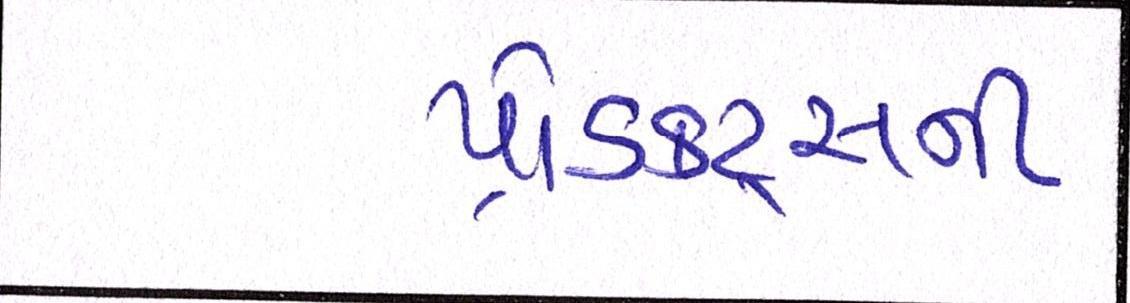 પ્રોડક્ટ્સની